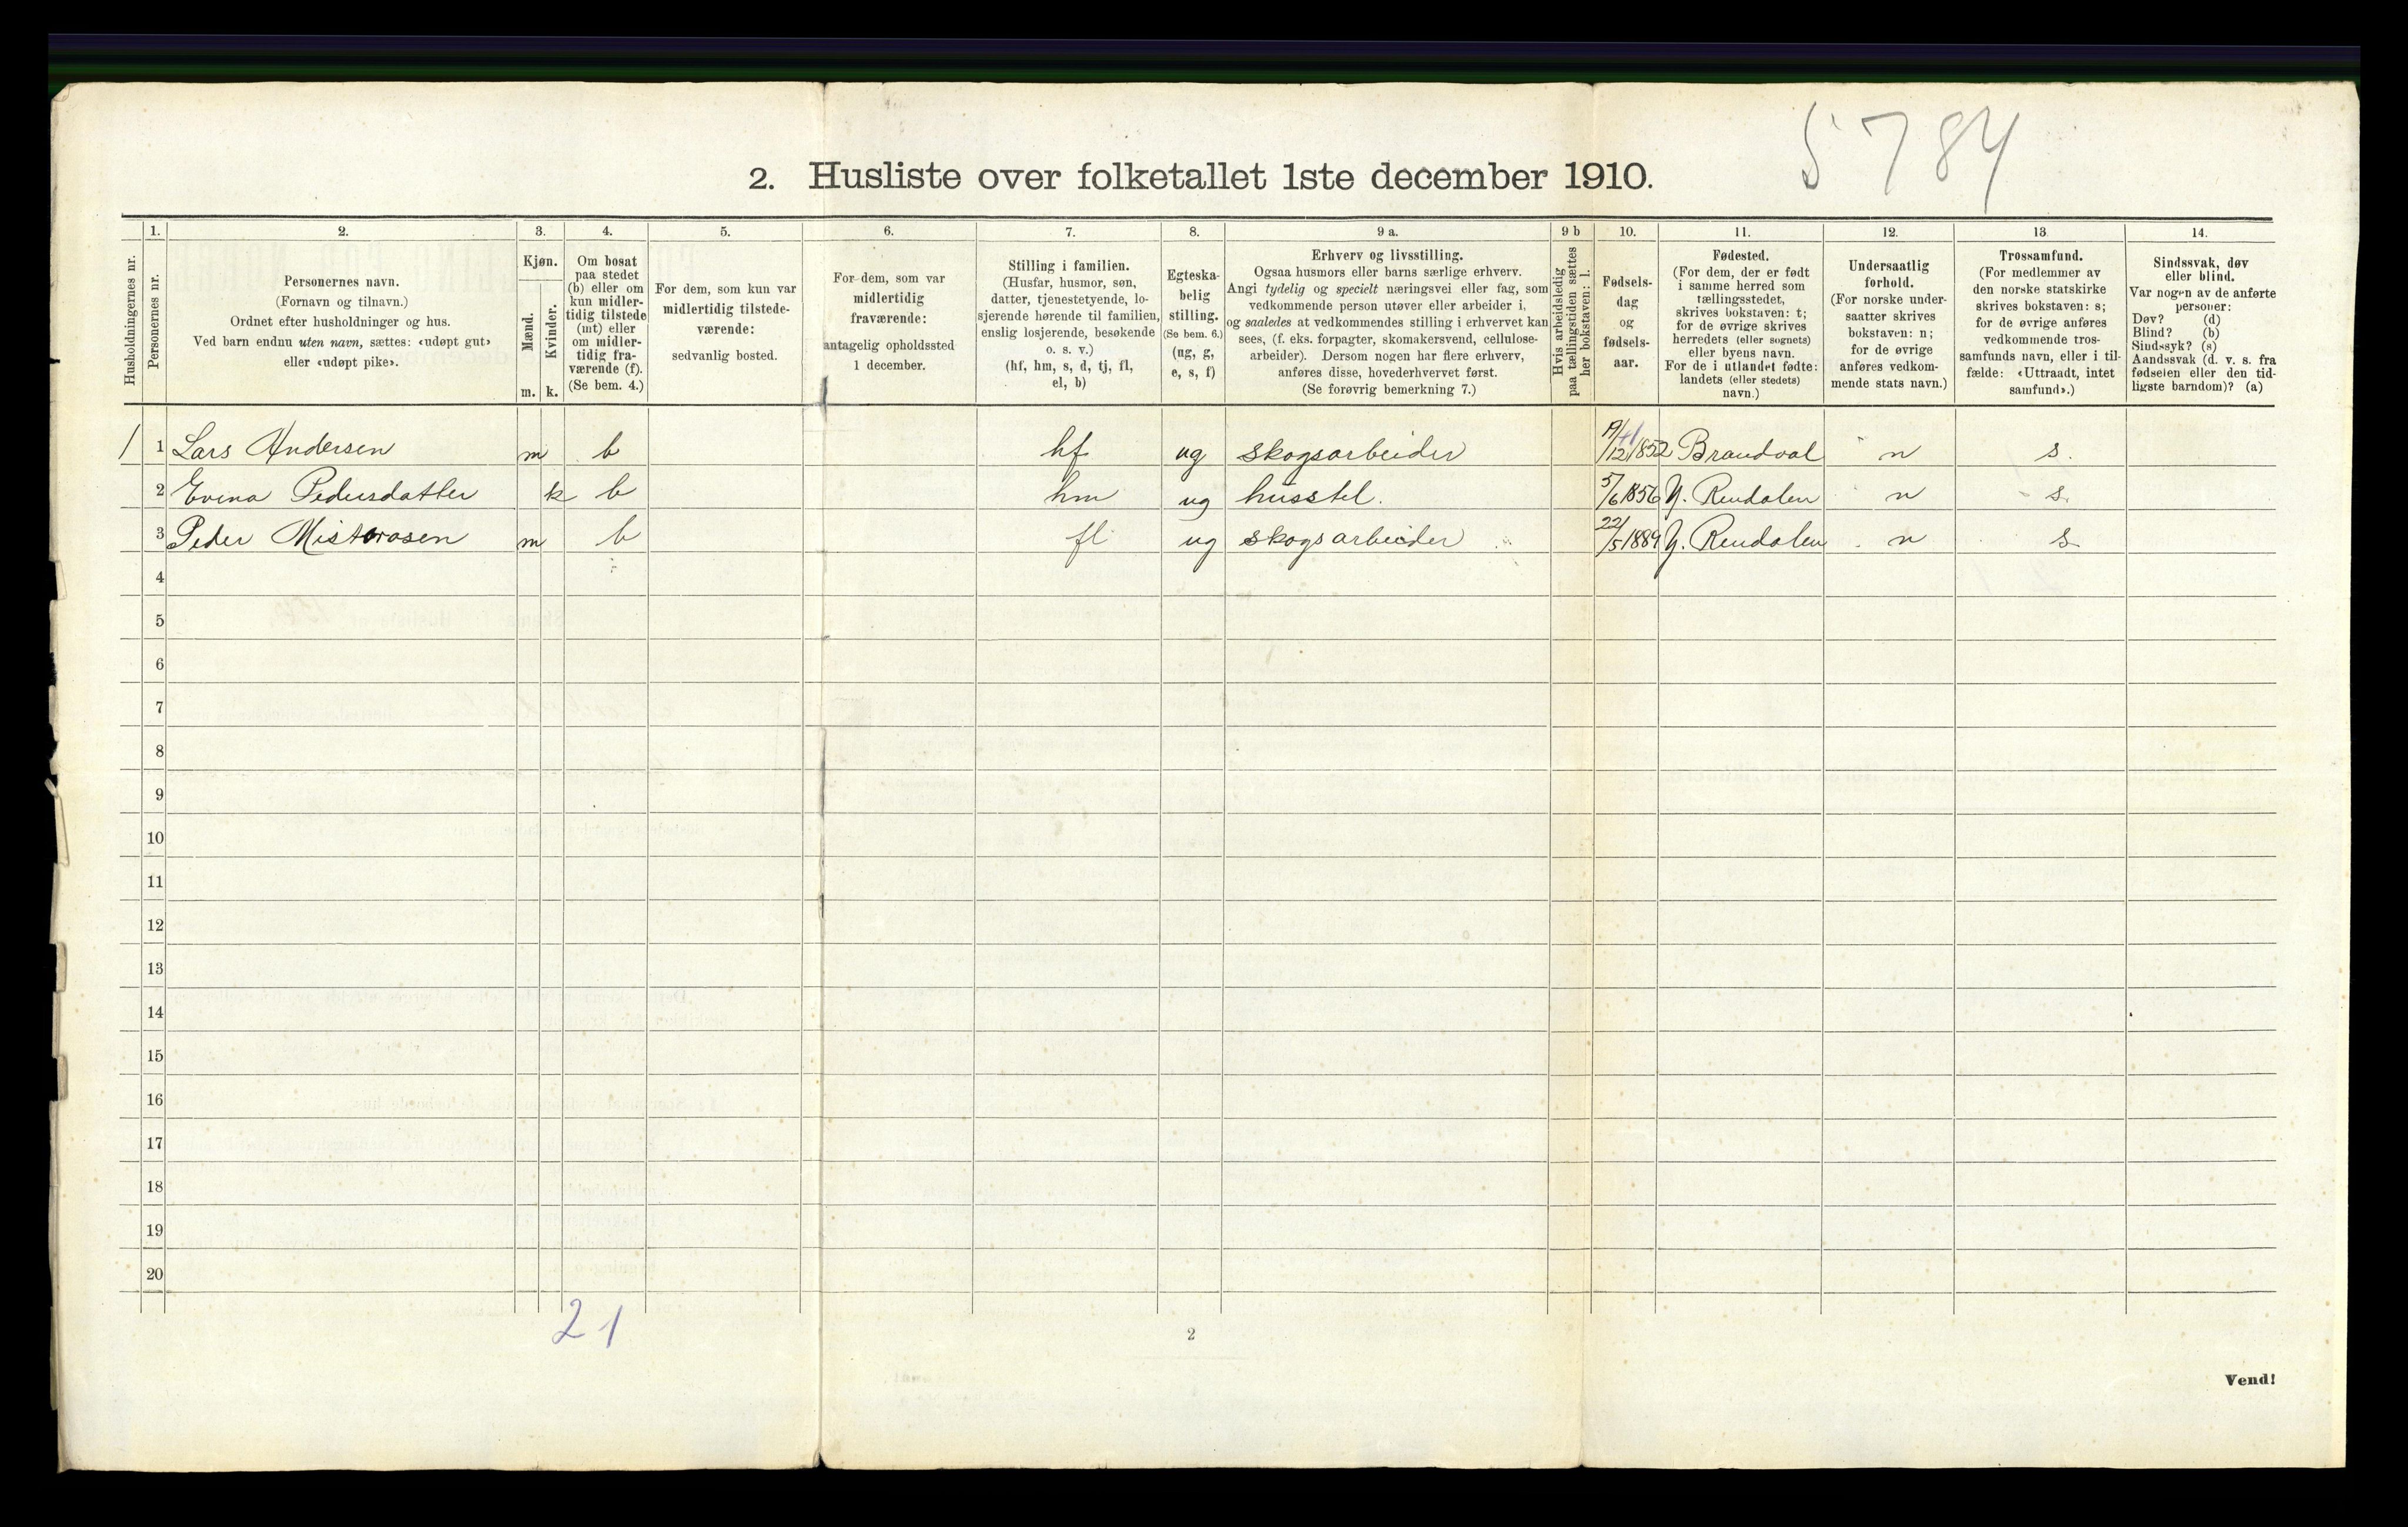 5784
2. Husliste over folketallet 1ste december 1910.
Husholdningernes nr.
1.
Personernes nr.
2.
Personernes navn.
(Fornavn og tilnavn.)
Ordnet efter husholdninger og hus.
Ved barn endnu uten navn, sættes: «udøpt gut»
eller «udøpt pike».
3.
Kjøn.
Mænd.
Kvinder.
m. k.
4.
Om bosat
paa stedet
(b) eller om
kun midler-
tidig tilstede
(mt) eller
om midler-
tidig fra-
værende (f).
(Se bem. 4.)
5.
For dem, som kun var
midlertidig tilstede-
værende:
sedvanlig bosted.
6.
For dem, som var
midlertidig
fraværende:
antagelig opholdssted
1 december.
7.
Stilling i familien.
(Husfar, husmor, søn,
datter, tjenestetyende, lo-
sjerende hørende til familien,
enslig losjerende, besøkende
o. s. v.)
(hf, hm, s, d, tj, fl,
el, b)
8.
Egteska-
belig
stilling.
(Se bem. 6.)
(ug, g,
e, s, f)
9 a.
Erhverv og livsstilling.
Ogsaa husmors eller barns særlige erhverv.
Angi tydelig og specielt næringsvei eller fag, som
vedkommende person utøver eller arbeider i,
og saaledes at vedkommendes stilling i erhvervet kan
sees, (f. eks. forpagter, skomakersvend, cellulose-
arbeider). Dersom nogen har flere erhverv,
anføres disse, hovederhvervet først.
(Se forøvrig bemerkning 7.)
9 b
Hvis arbeidsledig
paa tællingstiden sættes
her bokstaven: l.
10.
Fødsels-
dag
og
fødsels-
aar.
11.
Fødested.
(For dem, der er født
i samme herred som
tællingsstedet,
skrives bokstaven: t;
for de øvrige skrives
herredets (eller sognets)
eller byens navn.
For de i utlandet fødte:
landets (eller stedets)
navn.)
12.
Undersaatlig
forhold.
(For norske under-
saatter skrives
bokstaven: n;
for de øvrige
anføres vedkom-
mende stats navn.)
13
Trossamfund.
(For medlemmer av
den norske statskirke
skrives bokstaven: s;
for de øvrige anføres
vedkommende tros-
samfunds navn, eller i til-
fælde: «Uttraadt, intet
samfund».)
14.
Sindssvak, døv
eller blind.
Var nogen av de anførte
personer:
Døv? (d)
Blind? (b)
Sindssyk? (s)
Aandssvak (d. v. s. fra
fødselen eller den tid-
ligste barndom)? (a)
1 1 Lars Andersen m b hf ug skogsarbeider /12 1852 Brandval n s.
2 Evena Pedersdatter k b hm ug husstel. 5/6 1856 Y. Rendalen n s.
3 Peder Misterosen m b fl ug skogsarbeider 22/5 1889 Y. Rendalen n s
4
5
6
7
8
9
10
11
12
13
14
15
16
17
18
19
20
2 1
2
Vend!